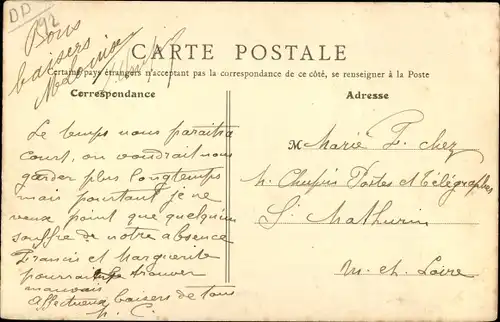 DD
92
Bons
baisers
CARTE POSTALE
Certains pays étrangers n'acceptent pas la correspondance de ce côté, se renseigner à la Poste
Correspondance
Le temps nous paraitra
court, on voudrait nous
garder plus longtemps
mais pourtant je ne
veux point que quelqu'un
souffre de notre absence
Francis et Marguerite
pourraient le trouver
mauvais
Affectueux baisers de tous
Adresse
M Marie F. chez
M. Chupin Postes et Télégraphes
St Mathurin
M. et. Loire